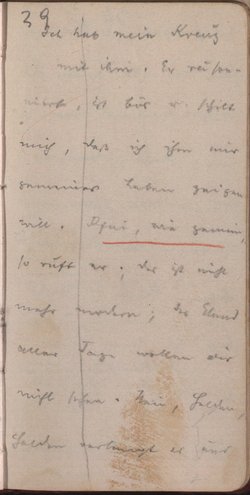 39
Ich hab mein Kreuz
mit ihm. Er räson-
niert, ist bös u. schilt
mich, daß ich ihm nur
gemeines Leben zeigen
will. Pfui, wie gemein
so ruft er; das ist nicht
mehr modern; das Elend
aller Tage wollen wir
nicht sehen. Nein, Helden,
Helden verlangt es uns